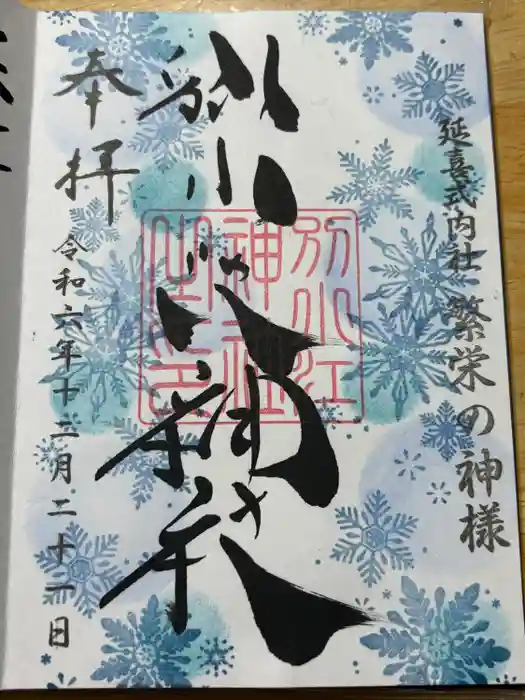 延喜式内社 繁栄の神様
別小江神社
奉拝
令和六年十二月二十一日
別小江
神社
之印